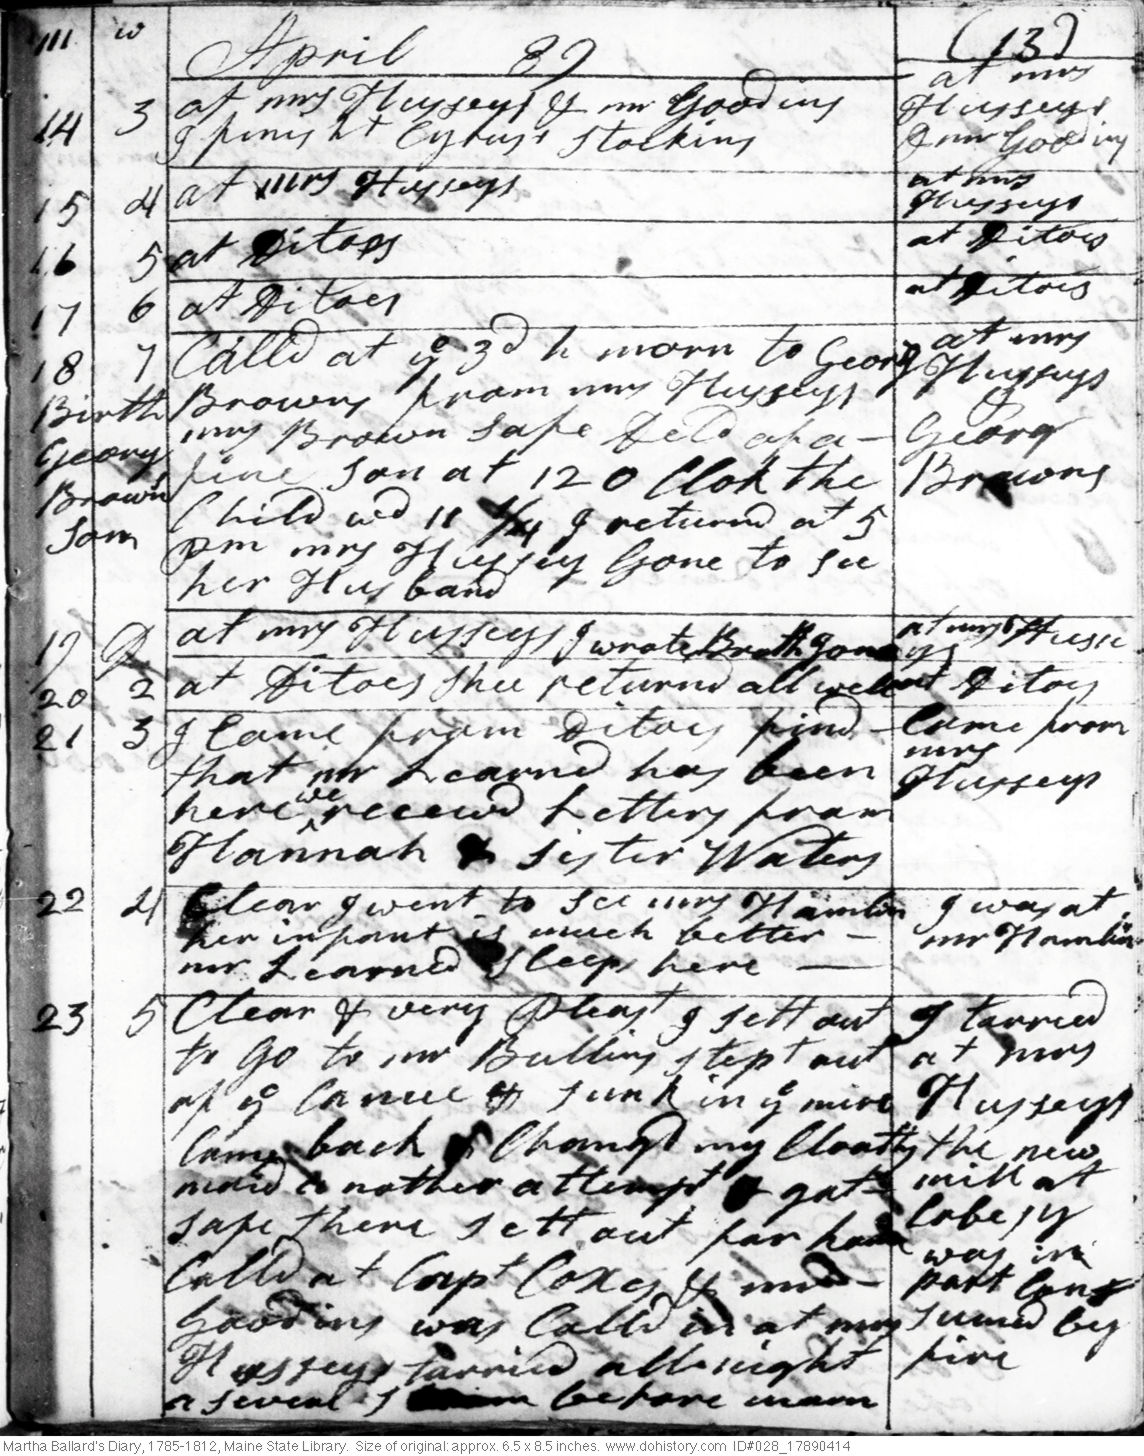 m w April 89 (13)
14 3 at mrs Husseys & mr Goodins
I finisht Cyruss Stockins
at mrs
Husseys
& mr Goodins
15 4 at mrs Husseys
at mrs
Husseys
16 5 at Ditoes
at Ditoes
17 6 at Ditoes
at Ditoes
18 7 Calld at ye 3d h morn to Georg
Browns from mrs Husseys
mrs Brown Safe Deld of a
fine Son at 12 O Clok the
Child wd 11 1/4 I returnd at 5
pm mrs Hussey Gone to see
her Husband
Birth
Georg
Browns
Son
at mrs
Husseys
Georg
Browns
19 D at mrs Husseys I wrote Broth Jona
at mrs Husse
ys
20 2 at Ditoes Shee returnd all well
at Ditoes
21 3 I Came from Ditoes find
that mr Learned has been
here we receivd Letters from
Hannah & Sister Waters
Came from
mrs
Husseys
22 4 Clear I went to see mrs Hamlin
her infant is much better
mr Learned Sleeps here
I was at
mr Hamlins
23 5 Clear & very Pleast I sett out
to Go to mr Bullins stept out
of ye Canue & Sunk in ye mire
Came back & Changd my Cloaths
maid another attempt & gat
safe there sett out for home
Calld at Capt Coxes & mr
Goodins was Calld in at mrs
Husseys tarried all night
a severe before morn
I tarried
at mrs
Husseys
the new
mill at
Cobesy
was in
part Con
sumed by
fire
Martha Ballard's Diary, 1785-1812, Maine State Library. Size of original: approx. 6.5 x 8.5 inches. www.dohistory.com ID#028_17890414